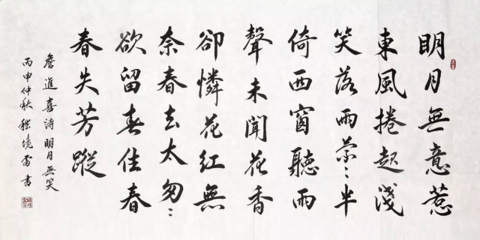 明月無意惹
東風捲起淺
笑落雨蒙〻半
倚西窗聽雨
聲未聞花香
卻憐花紅無
奈春去太匆〻
欲留春住春
春失芳蹤
詹進喜詩明月無笑
丙申仲秋
書